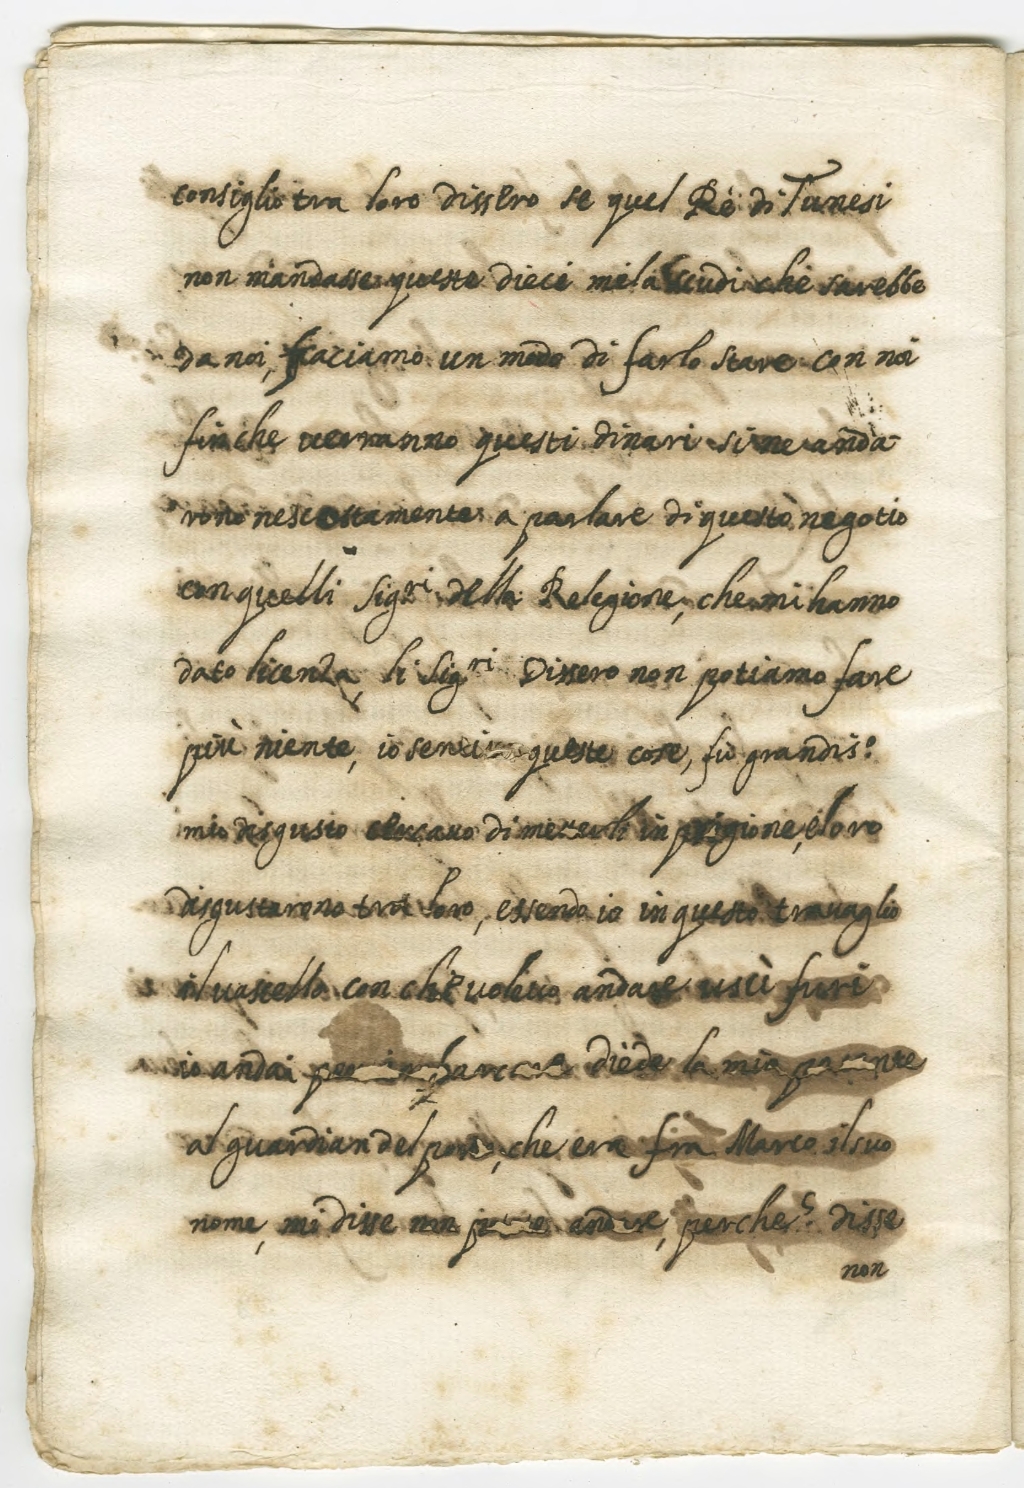 consiglio tra loro dissero se quel Rè di Tunesi
non mandasse queste dieci mila scudi che sarebbe
da noi, facciamo un modo di farlo stare con noi
finche verranno questi dinari si ne anda
rono nescostamente a parlare di questo negotio
con quelli Sigri della Relegione, che mi hanno
dato licenza, li Sigri Dissero non potiamo fare
più niente, io queste cose, fù grandis.o
mio disgusto di in prigione, e loro
disgustarono tra loro, essendo io in questo travaglio
il vascello con che volevo andare uscì furi
io andai per imbarcare diede la mia patente
al guardian del porto, che era fra Marco il suo
nome, mi disse non andare, perche? disse
non